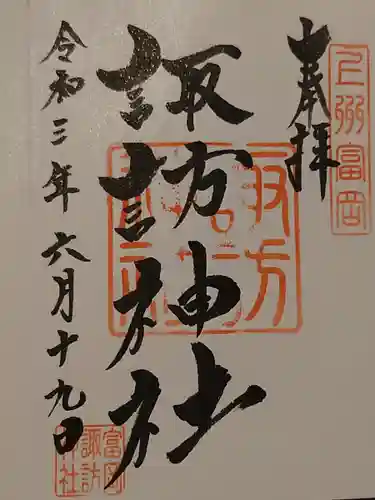 奉拝
上州富岡
諏訪神社
令和三年六月十九日
富岡
諏訪
神社